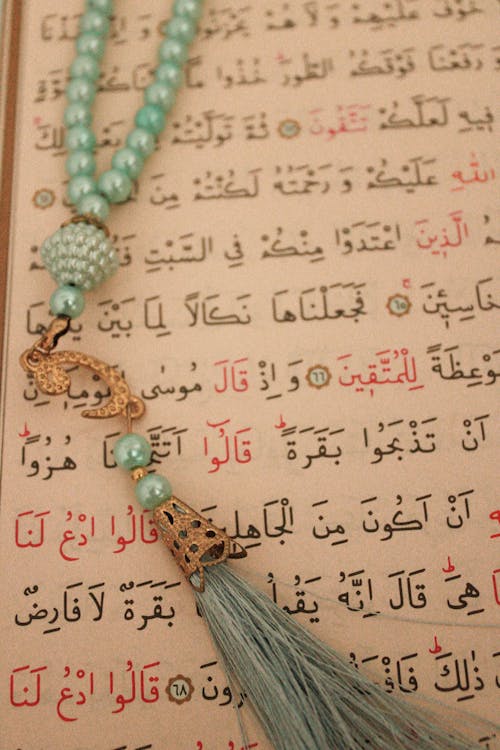 خَوْفٌ عَلَيْهِمْ وَ لَا هُمْ يَحْزَنُونَ
وَ رَفَعْنَا فَوْقَكُمُ الطُّورَ خُذُوا مَا
فِيهِ لَعَلَّكُمْ تَتَّقُونَ ثُمَّ تَوَلَّيْتُمْ ذٰلِكَ
اللّٰهِ عَلَيْكُمْ وَ رَحْمَتُهُ لَكُنْتُمْ مِنَ
الَّذِينَ اعْتَدَوْا مِنْكُمْ فِي السَّبْتِ
خَاسِئِينَ ٦٥ فَجَعَلْنَاهَا نَكَالًا لِمَا بَيْنَ
مَوْعِظَةً لِلْمُتَّقِينَ ٦٦ وَ إِذْ قَالَ مُوسَى
أَنْ تَذْبَحُوا بَقَرَةً قَالُوا هُزُوًا
أَنْ أَكُونَ مِنَ الْجَاهِلِينَ قَالُوا ادْعُ لَنَا
هِيَ قَالَ إِنَّهُ يَقُولُ بَقَرَةٌ لَا فَارِضٌ
ذٰلِكَ فَافْعَلُوا ٦٨ قَالُوا ادْعُ لَنَا